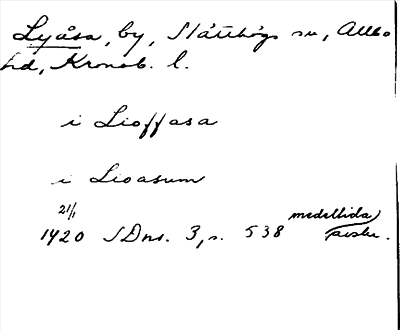 Lyåsa, by, Slätthögs sn, Allbo
hd, Kronob. l.
i Lioffasa
i Lioasum
21/1 medeltida
1420 SDns. 3, s. 538 avskr.